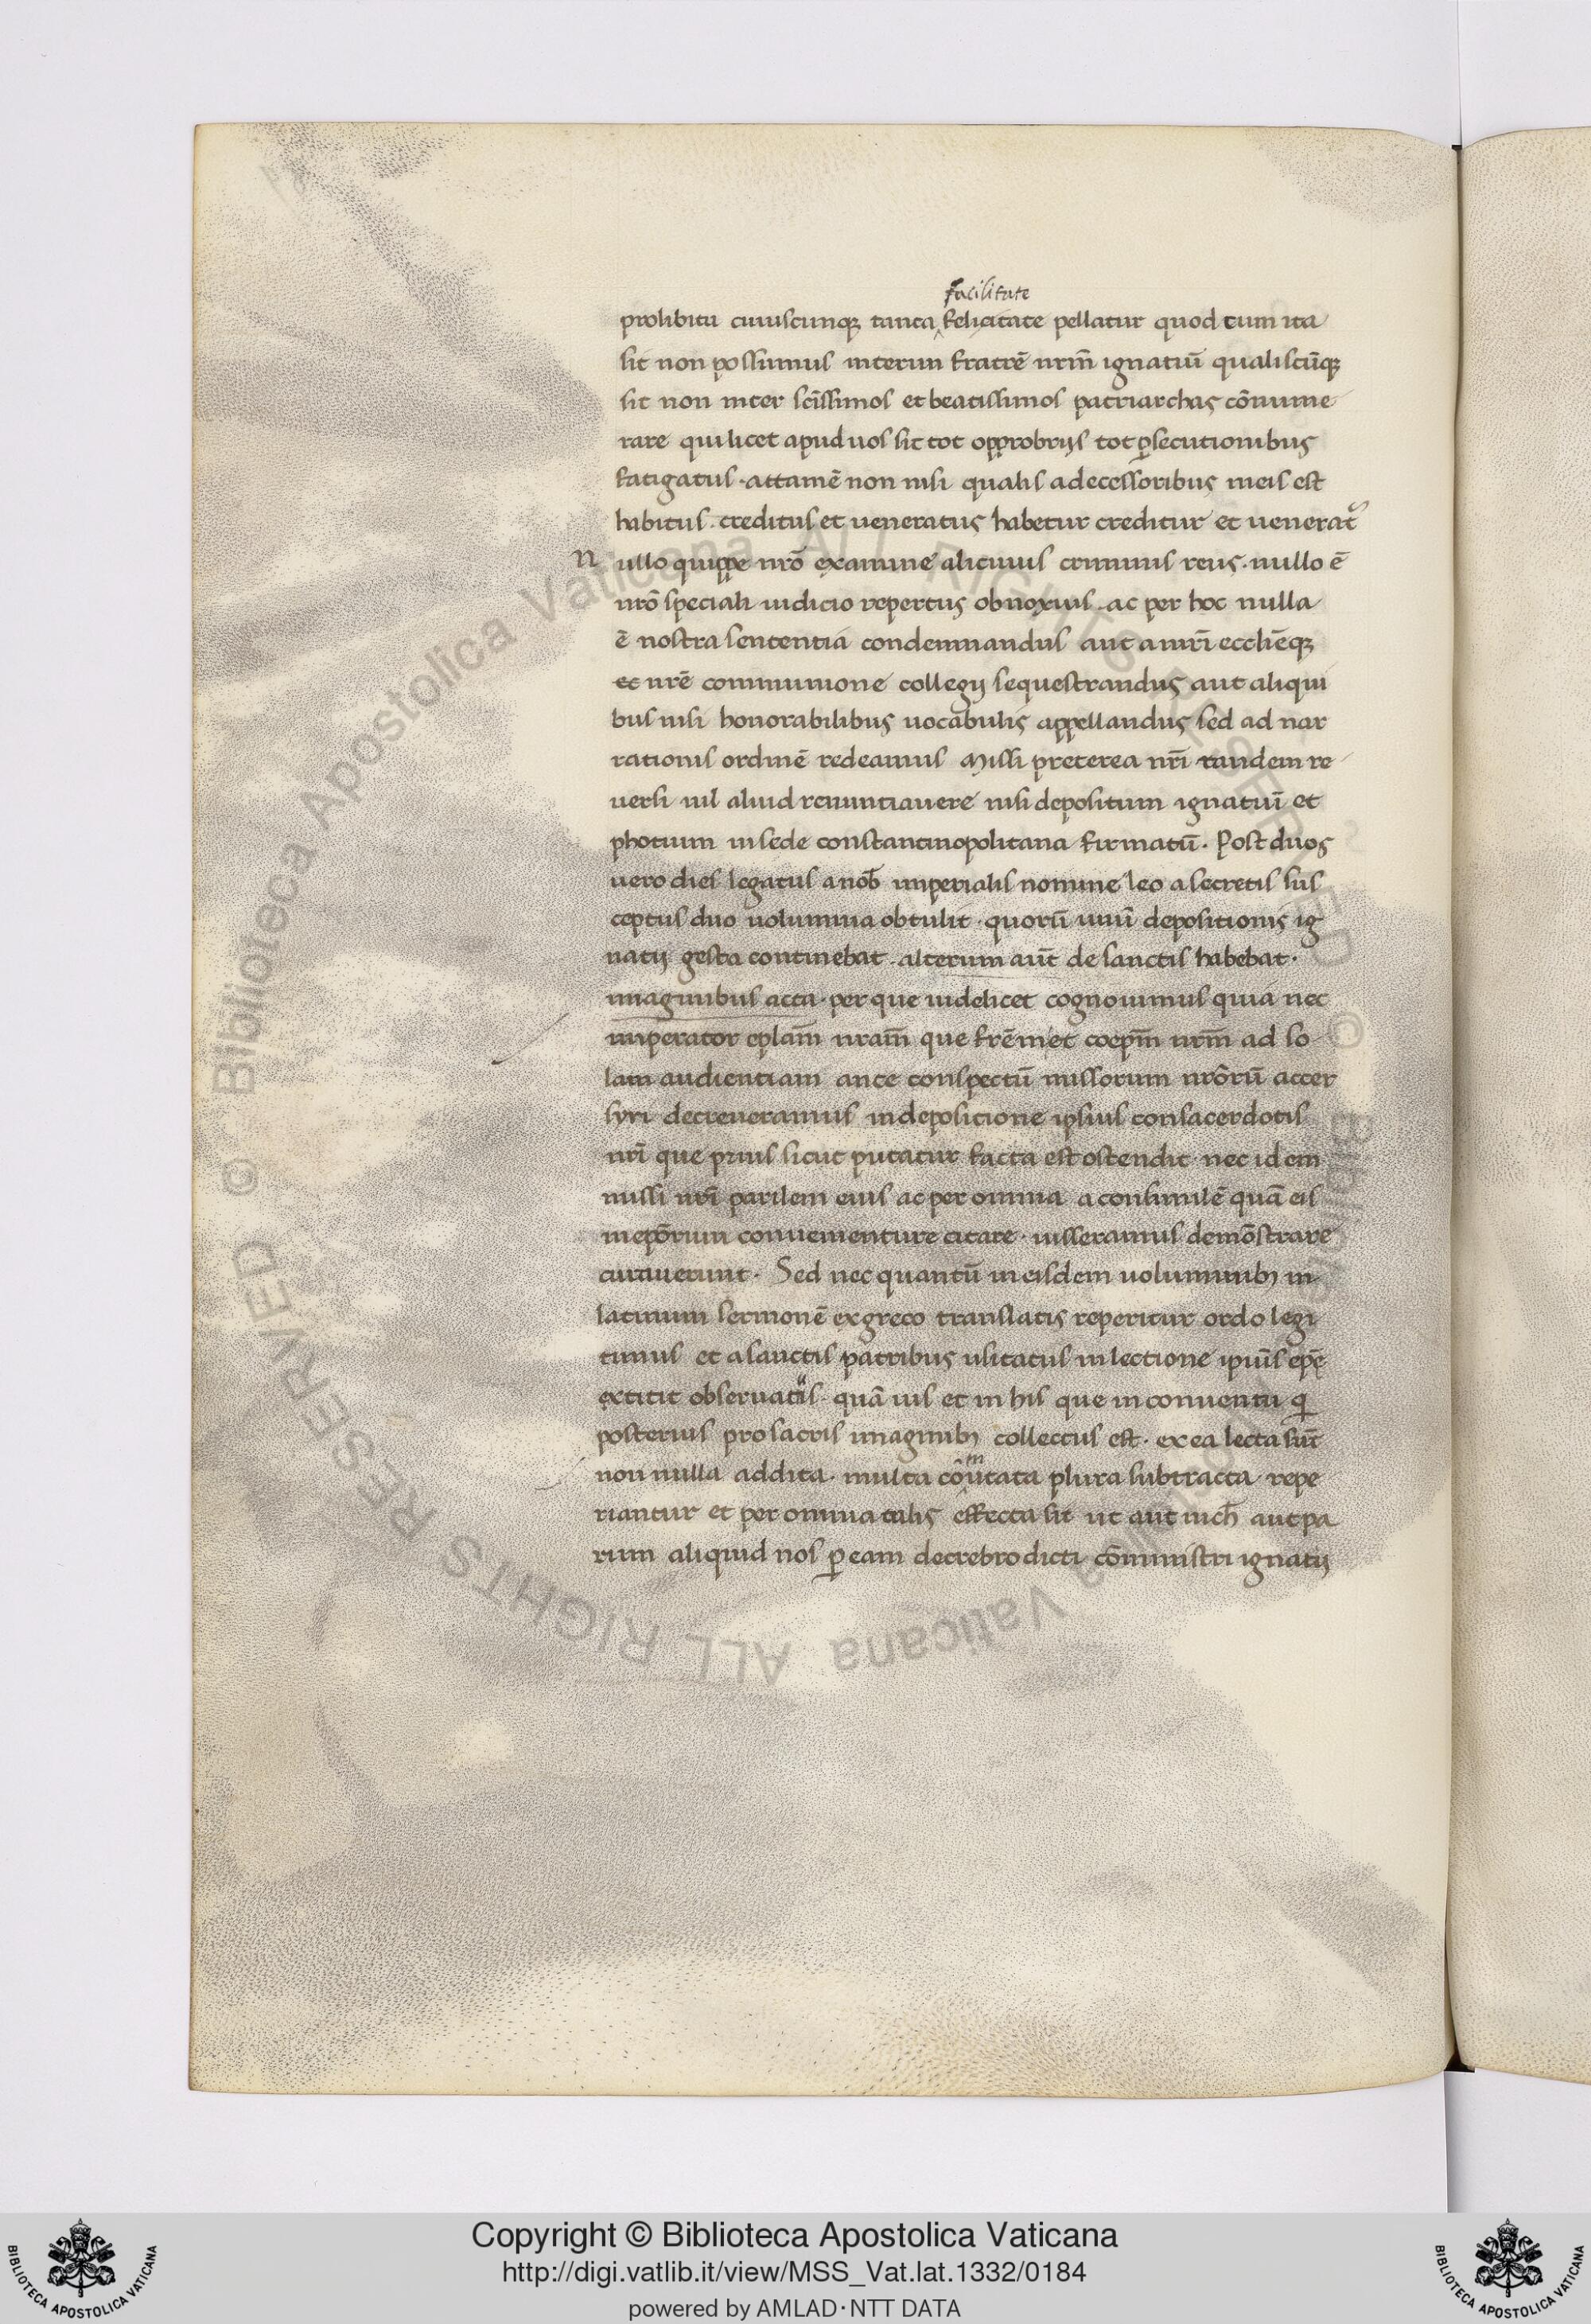 facilitate
prolibitu cuiuscunqꝫ tanta felicitate pellatur quod cum ita
sit non possumus interim fratrē nrm̄ ignatiū qualiscūqꝫ
sit non inter scīssimos et beatissimos patriarchas cōnume
rare qui licet apud uos sit tot opprobrijs tot ꝑsecutionibus
fatigatus · attamē non nisi qualis adecessoribus meis est
habitus · creditus et ueneratus habetur creditur et ueneratᷣ
Nullo quippe nrō examine alicuius criminis reus · nullo ē
nrō speciali iudicio repertus obnoxius · ac per hoc nulla
ē nostra sententia condemnandus aut a nrī ecclīeqꝫ
et nrē communione collegij sequestrandus aut aliqui
bus nisi honorabilibus uocabulis appellandus sed ad nar
rationis ordinē redeamus Missi preterea nrī tandem re
uersi nil aliud renuntiauere nisi depositum ignatiū et
photium in sede constantinopolitana firmatū · Post duos
uero dies legatus a nob̄ imperialis nomine leo a secretis sus
ceptus duo uolumina obtulit · quorū unū depositionis ig
natij gesta continebat · alterum aūt de sanctis habebat ·
imaginibus acta · per que uidelicet cognouimus quia nec
imperator eplam̄ nram̄ que frēm et coepm̄ nrm̄ ad so
lam audientiam ante conspectū missorum nrōrū accer
syri decreueramus in depositione ipsius consacerdotis
nrī que prius sicut putatur facta est ostendit · nec idem
missi nrī parilem eius ac per omnia a consimilē quā eis
in epōrium conuementure citare · iusseramus demōstrare
curauerunt · Sed nec quantū in eisdem uoluminibꝫ in
latinum sermonē ex greco translatis reperitur ordo legi
timus et a sanctis patribus usitatus in lectione ipiūs epꝫ̄
extitit obseruatus · quā uis et in his que in conuentu qi
posterius pro sacris imaginibꝫ collectus est · ex ea lecta sūt
non nulla addita · multa cōmutata plura subtracta · repe
riantur et per omnia talis effecta sit ut aut nich̄ aut pa
rum aliquid nos ꝑ eam decrebro dicti cōministri ignatij
Copyright © Biblioteca Apostolica Vaticana
http://digi.vatlib.it/view/MSS_Vat.lat.1332/0184
powered by AMLAD·NTT DATA
BIBLIOTECA APOSTOLICA VATICANA
BIBLIOTECA APOSTOLICA VATICANA
© Biblioteca Apostolica Vaticana ALL RIGHTS RESERVED